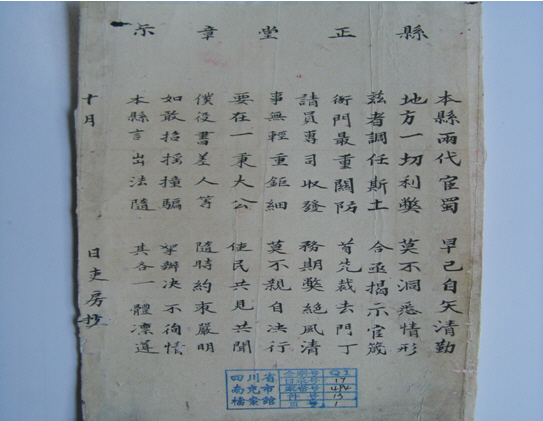 縣正堂章示
本縣兩代宦蜀 早已自矢清勤
地方一切利獘 莫不洞悉情形
茲者調任斯土 合亟揭示官箴
衙門最重關防 首先裁去門丁
請員專司收發 務期獘絕風清
事無輕重鉅細 莫不親自決行
要在一秉大公 使民共見共聞
僕役書差人等 隨時約束嚴明
如敢招搖撞騙 拏辦決不徇情
本縣言出法隨 其各一體凜遵
十月 日吏房抄
四川省
南充市
檔案館
全宗号
目录号 17
案卷号
件号 13
页号 1